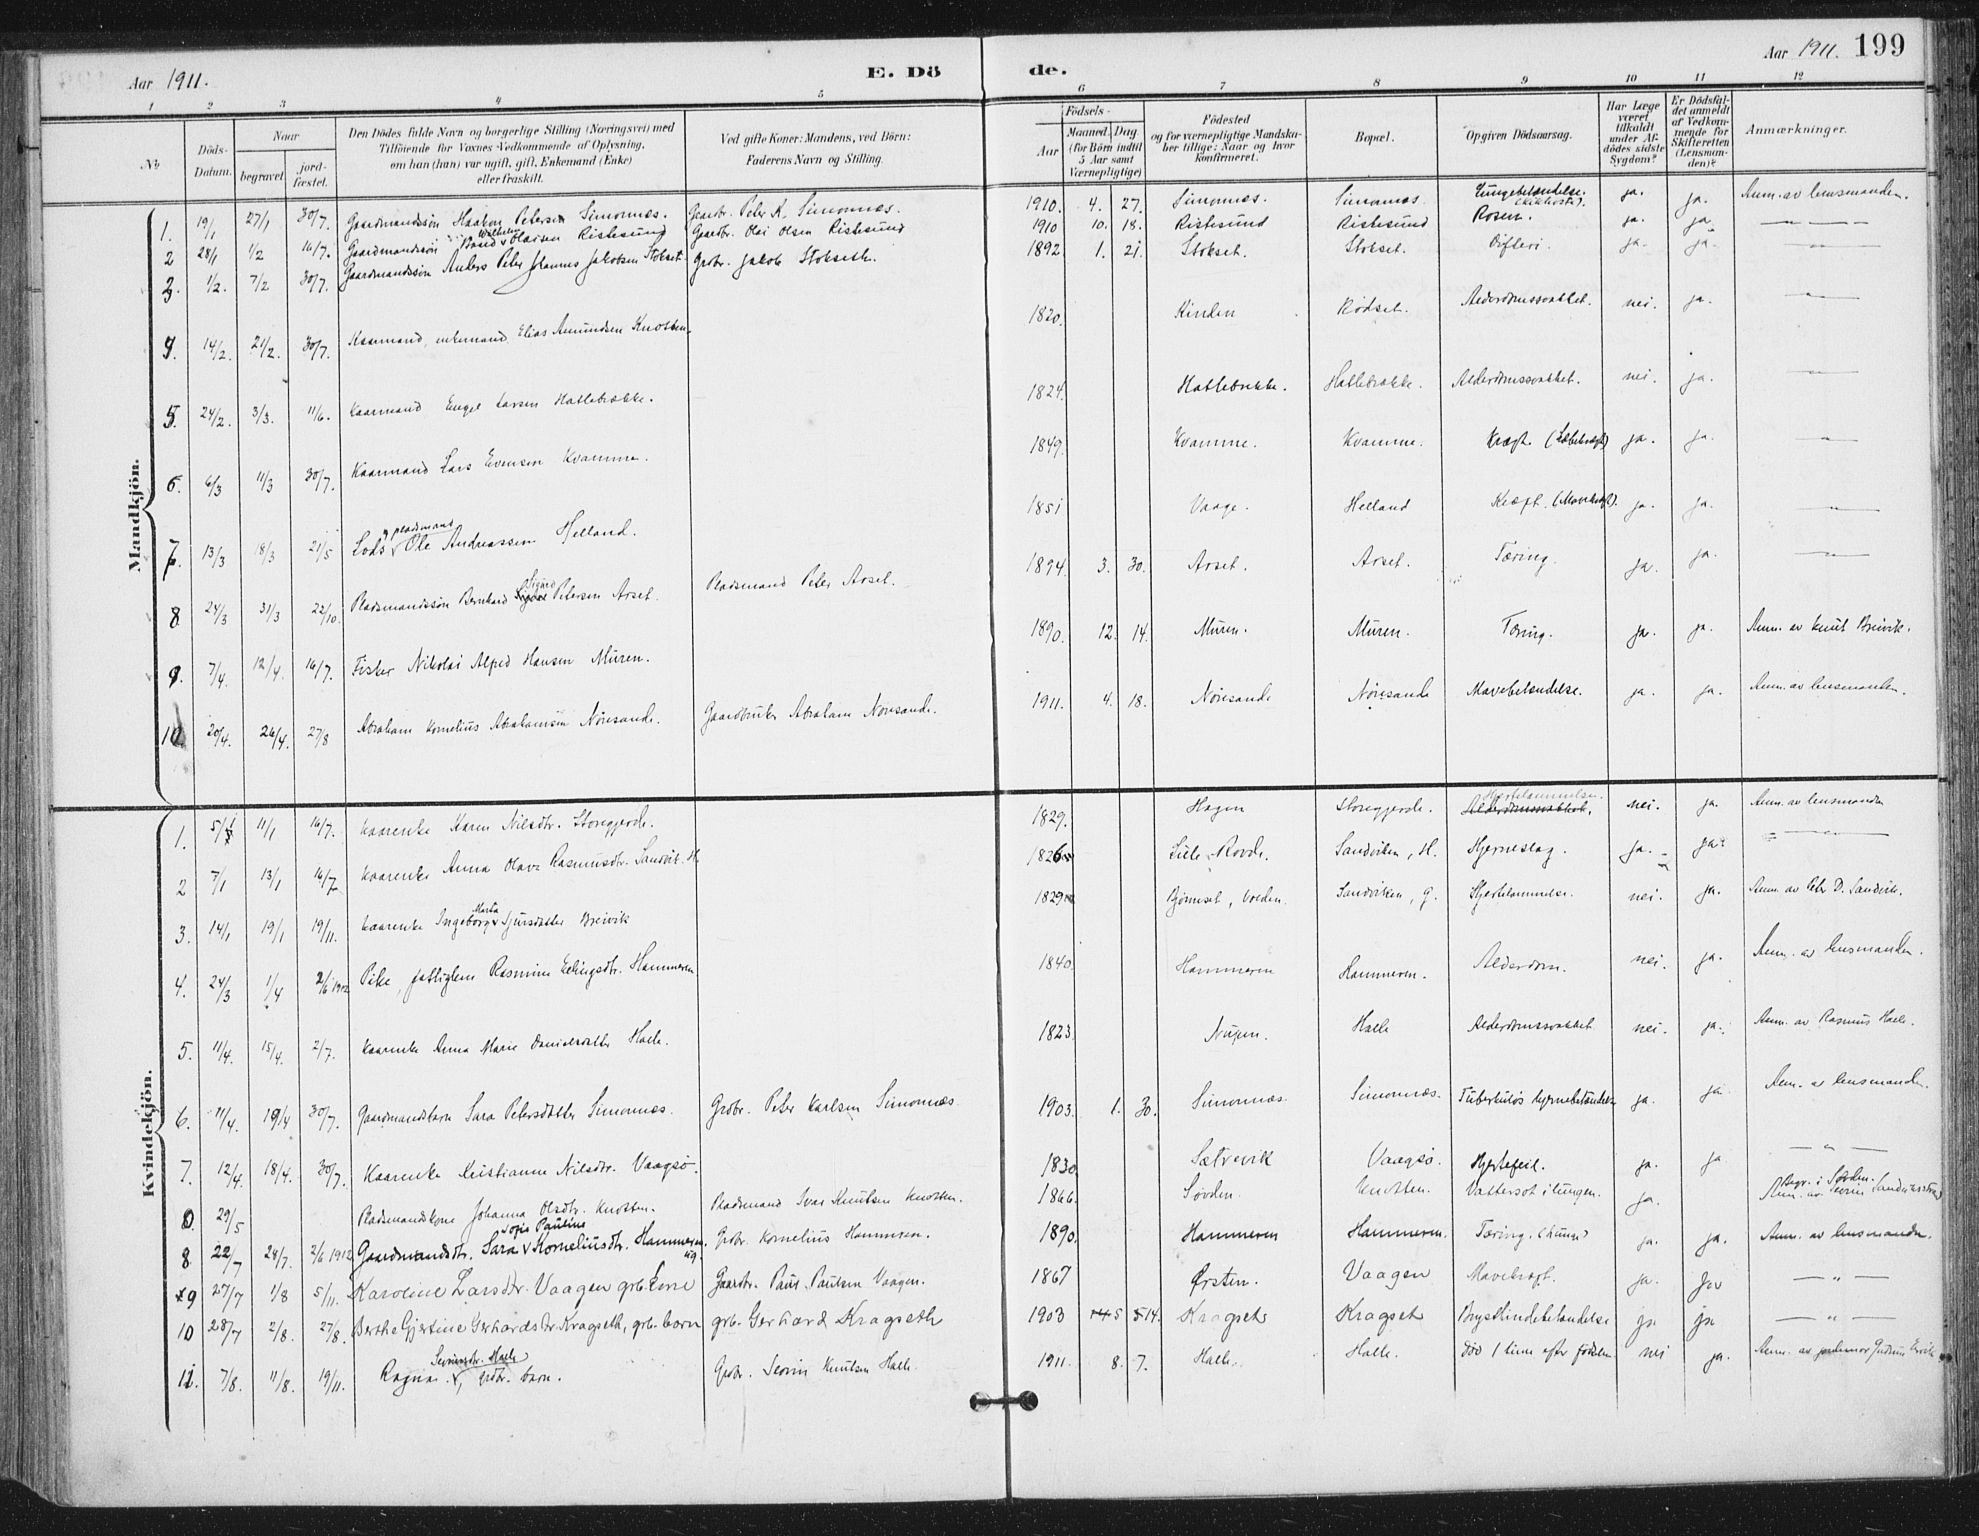 Aar 1911.
E. Dö
de.
Aar 1911. 199
1 2 3 4 5 6 7 8 9 10 11 12
No
Döds-
Datum.
Naar
begravet.
jord-
fæstet.
Den Dödes fulde Navn og borgerlige Stilling (Næringsvei) med
Tilföiende for Voxnes Vedkommende af Oplysning,
om han (hun) var ugift, gift, Enkemand (Enke)
eller fraskilt.
Ved gifte Koner: Mandens, ved Börn:
Faderens Navn og Stilling.
Födsels-
Aar
Maaned. Dag
(for Börn indtil
5 Aar samt
Værnepligtige)
Födested
og for værnepligtige Mandska-
ber tillige: Naar og hvor
konfirmeret.
Bopæl.
Opgiven Dödsaarsag.
Har Læge
været
tilkaldt
under Af-
dödes sidste
Sygdom?
Er Dödsfal-
det anmeldt
af Vedkom-
mende for
Skifteretten
(Lensman-
den)?
Anmærkninger.
Mandkjön.
1. 19/1 27/1 30/7. Gaardmandssön Haakon Petersen Simonnes. Gaardbr. Peter K. Simonnes. 1910. 4. 27. Simonnes. Simonnes Lungebetændelse. (Kikhoste). ja. ja. Anm. av lensmanden.
2 28/1 1/2 16/7. Gaardmandssön Bernt Wilhelm Olaisen Ristesund Gaardbr. Olai Olsen Ristesund 1910 10. 18. Ristesund Ristesund Rosen. ja. ja. — " —
3. 1/2. 7/2 30/7. Gaardmandssön Anders Peter Johannes Jakobsen Stokset. Grdbr. Jakob Stokseth. 1892 1. 21. Stokset. Stokset. Difteri. ja. ja. — " —
4. 14/2. 21/2. 30/7. Kaarmand, enkemand Elias Amundsen Knotten. 1820. Kinden Rödset. Alderdomssvakhet. nei. ja. — " —
5. 24/2. 3/3. 11/6. Kaarmand Engel Larsen Hatlebrække. 1824. Hatlebrekke. Hatlebrekke. Alderdomssvakhet. nei. ja. — " —
6. 6/3 11/3 30/7. Kaarmand Lars Evensen Kvamme. 1849. Kvamme. Kvamme. Kræft. (Læbekræft) ja. ja. — " —
7. 13/3 18/3 21/5 Lods & pladsmand Ole Andreassen Helland. 1851 Vaage. Helland Kræft. (Mavekræft). ja. ja. — " —
8 24/3 31/3 22/10. Pladsmandssön Bernhard Sigurd Petersen Arset. Pladsmand Peter Arset. 1894. 3. 30. Arset. Arset. Tæring. ja. ja. — " —
9. 7/4. 12/4. 16/7. Fisker Nikolai Alfred Hansen Muren. 1890. 12. 14. Muren. Muren. Tæring. ja. ja. Anm. av Knut Breivik.
10 20/4. 26/4. 27/8 Abraham Kornelius Abrahamsen Nöresande. Gaardbruker Abraham Nöresande. 1911. 4. 18. Nöresande Nöresande Mavebetændelse. ja. ja. Anm. av lensmanden.
Kvindekjön.
1. 5/1 11/1 16/7. Kaarenke Karen Nilsdtr. Storegjerde. 1829. Hagen Storegjerde. Alderdomssvakhet. Hjertelammelse. nei. ja. Anm. av lensmanden
2 7/1 13/1 16/7 Kaarenke Anna Olava Rasmusdtr. Sandvik. H. 1826 Lille-Rovde. Sandviken, H. Hjerneslag. ja. ja. — " —
3. 14/1 19/1 19/11. Kaarenke Ingeborg Marta Sjursdatter Breivik 1829 Björneset, Volden. Sandviken, G. Hjertelammelse. nei. ja. Anm. av Petr D. Sandvik.
4. 24/3 1/4 2/6 1912 Pike, fattiglem Rasmine Ellingsdtr. Hammeren 1840. Hammeren Hammeren. Alderdom. nei. ja. Anm. av lensmanden.
5. 11/4. 15/4. 2/7. Kaarenke Anna Marie Danielsdatter Hasle. 1823. Hasle Alderdomssvakhet nei. ja. Anm. av Rasmus Hasle.
6. 11/4. 19/4 30/7. Gaardmandsbarn Sara Petersdatter Simonnes. Grdbr. Peter Karlsen Simonnes 1903. 1. 30. Simonnes Simonnes. Tuberkulös hjernebetændelse ja. ja. Anm. av lensmanden.
7. 12/4. 18/4. 30/7. Kaarenke Kristianne Nilsdtr. Vaagsö. 1830. Sætrevik Vaagsö. Hjertefeil. ja. ja — " —
0. 29/5 Pladsmandskone Johanna Olsdtr. Knotten. Pladsmand Ivar Knutsen Knotten. 1866. Sövden. Knotten. Vattersot i lungen. ja. Begr. i Sövden.
8 22/7 24/7. 2/6 1912 Gaardmandsdtr. Sara Sofie Pauline Korneliusdtr. Hammeren. ug. Grdbr. Kornelius Hammeren. 1890. Hammeren Hammeren. Tæring. (Lunge) ja. ja. Anm. av lensmanden.
9 27/7 1/8 5/11. Karoline Larsdtr. Vaagen grb. kone Gaardbr. Paul Paulsen Vaagen. 1867 Ørsten. Vaagen Mavekræft. ja. ja — " —
10 28/7 2/8. 27/8. Berthe Gjertine Gerhardsdtr. Kragseth, grb. barn grb. Gerhard Kragseth 1903 5 14. Kragset Kragset Brysthindebetændelse ja ja — " —
11. 7/8. 11/8. 19/11. Ragna Severinsdtr. Hasle, grdbr. barn. Grdbr. Severin Knutsen Hasle. 1911. 8. 7. Hasle. Hasle. Död 1 time efter födselen nei ja. Anm. av jordemor Gudrun Ervik